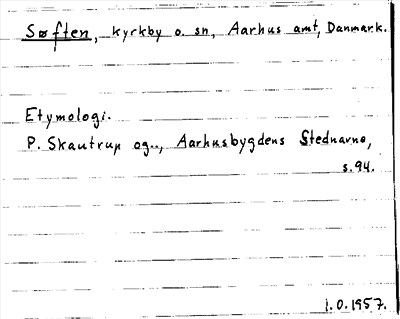 Søften, kyrkby o. sn, Aarhus amt, Danmark.
Etymologi.
P. Skautrup og.., Aarhusbygdens Stednavne,
s. 94.
i.o.1957.